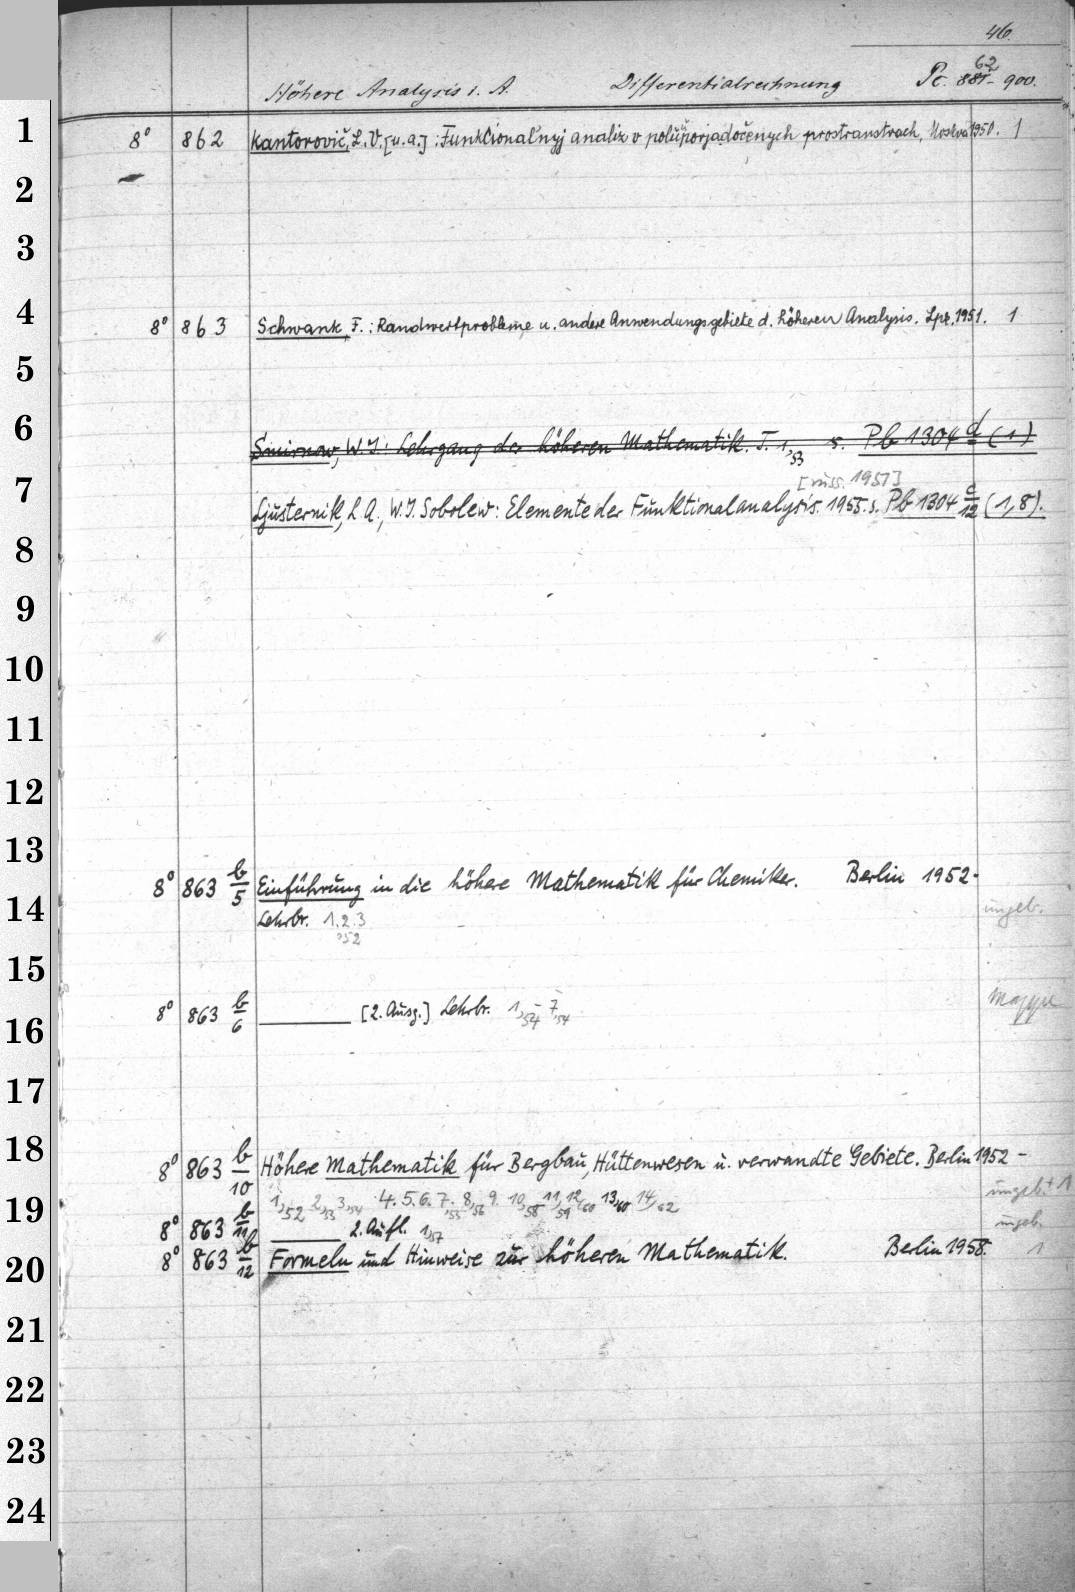 46.
Höhere Analysis i. A. Differentialrechnung Pc. 62 881-900.
1 8° 862 Kantorovič, L. V. [u. a.] : Funkcional'nyj analiz v poluporjadočenych prostranstvach, Moskva 1950. 1
2
3
4 8° 863 Schwank, F. : Randwertprobleme u. andere Anwendungsgebiete d. höheren Analysis. Lpz. 1951. 1
5
6 Smirnow, W. I. : Lehrgang der höheren Mathematik. T. 1,53 s. Pb 1304 d (1)
[russ. 1951]
7 Ljusternik, L. A., W. I. Sobolew : Elemente der Funktionalanalysis. 1955. s. Pb 1304 c/12 (1,8).
8
9
10
11
12
13
8° 863 b/5 Einführung in die höhere Mathematik für Chemiker. Berlin 1952-
14 Lehrbr. 1.2.3 ungeb.
,52
15
16 8° 863 b/6 ——— [2. Ausg.] Lehrbr. 1,54 - 7,54 Mappe
17
18 8° 863 b/10 Höhere Mathematik für Bergbau, Hüttenwesen u. verwandte Gebiete. Berlin 1952 -
19 1,52 2,53 3,54 4. 5. 6. 7,55 8,56 9. 10,58 11,59 12,60 13,60 14,62 ungeb. + 1
8° 863 b/11 ——— 2. Aufl. 1,57 ungeb.
20 8° 863 b/12 Formeln und Hinweise zur höheren Mathematik. Berlin 1958. 1
21
22
23
24